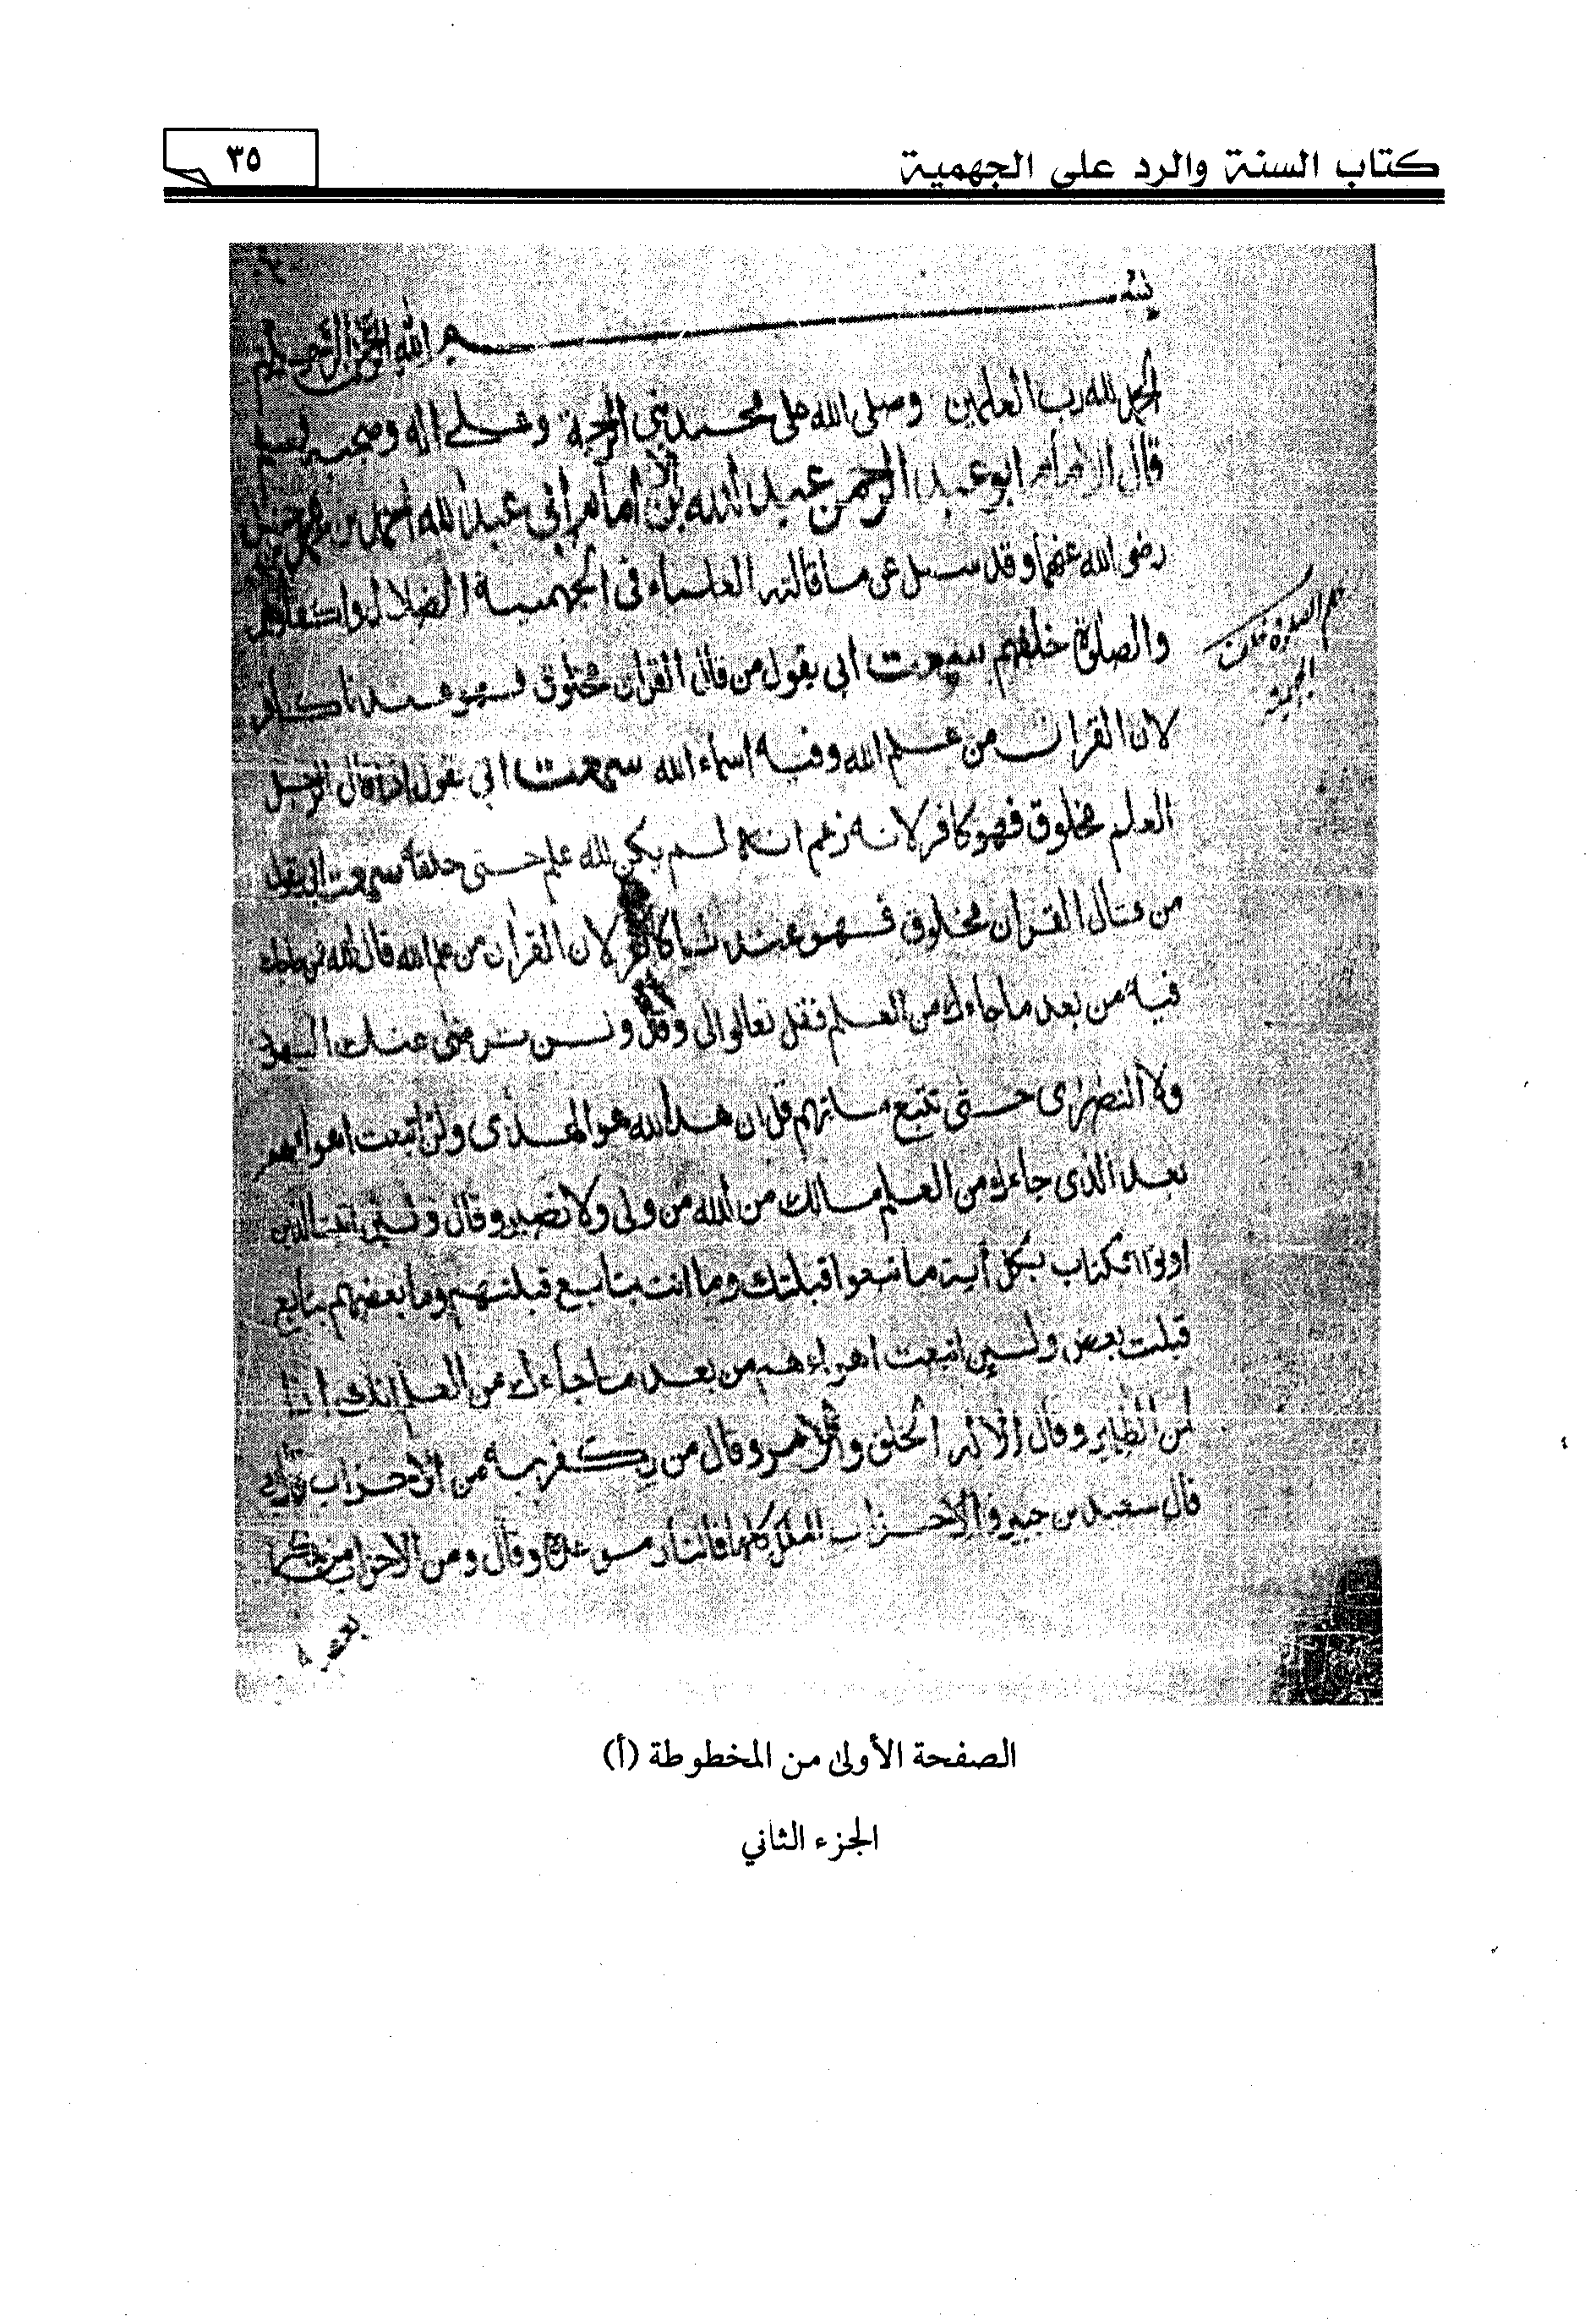 كتاب السنة والرد على الجهمية
٣٥
بسم الله الرحمن الرحيم
الحمد لله رب العلمين وصلى الله على محمد نبي الرحمة وعلى اله وصحبه
قال الامام ابو عبد الرحمن عبد الله بن الامام ابي عبد الله احمد بن محمد بن حنبل
رضى الله عنهما وقد سيل عن ما قالته العلماء فى الجهمية الضلال واكفارهم
والصلوة خلفهم سمعت ابي يقول من قال القران مخلوق فهو عندنا كافر
لان القران من علم الله وفيه اسماء الله سمعت ابي يقول اذا قال الرجل
العلم مخلوق فهو كافر لانه زعم انه لم يكن لله علم حتى خلقه سمعت ابي يقول
من قال القران مخلوق فهو عندنا كافر لان القرأن من علم الله قال الله فمن حاجك
فيه من بعد ما جاءك من العلم فقل تعالوا الى وقال ولن ترضى عنك اليهود
ولا النصرى حتى تتبع ملتهم قل ان هدا الله هو الهدى ولئن اتبعت اهوائهم
بعد الذى جاءك من العلم مالك من الله من ولى ولا نصير وقال ولئن اتيت الذين
اوتوا الكتاب بكل أية ما تبعوا قبلتك وما انت بتابع قبلتهم وما بعضهم بتابع
قبلت بعض ولين اتبعت اهواءهم من بعد ما جاءك من العلم انك اذا
لمن الظالمين وقال الا له الخلق والامر وقال من يكفر به من الاحزاب
قال سعيد بن جبير والاحزاب الملل كلها فالنار موعده وقال ومن الاحزاب من ينكر
بعضه
الجهمية
الصفحة الأولى من المخطوطة (أ)
الجزء الثاني